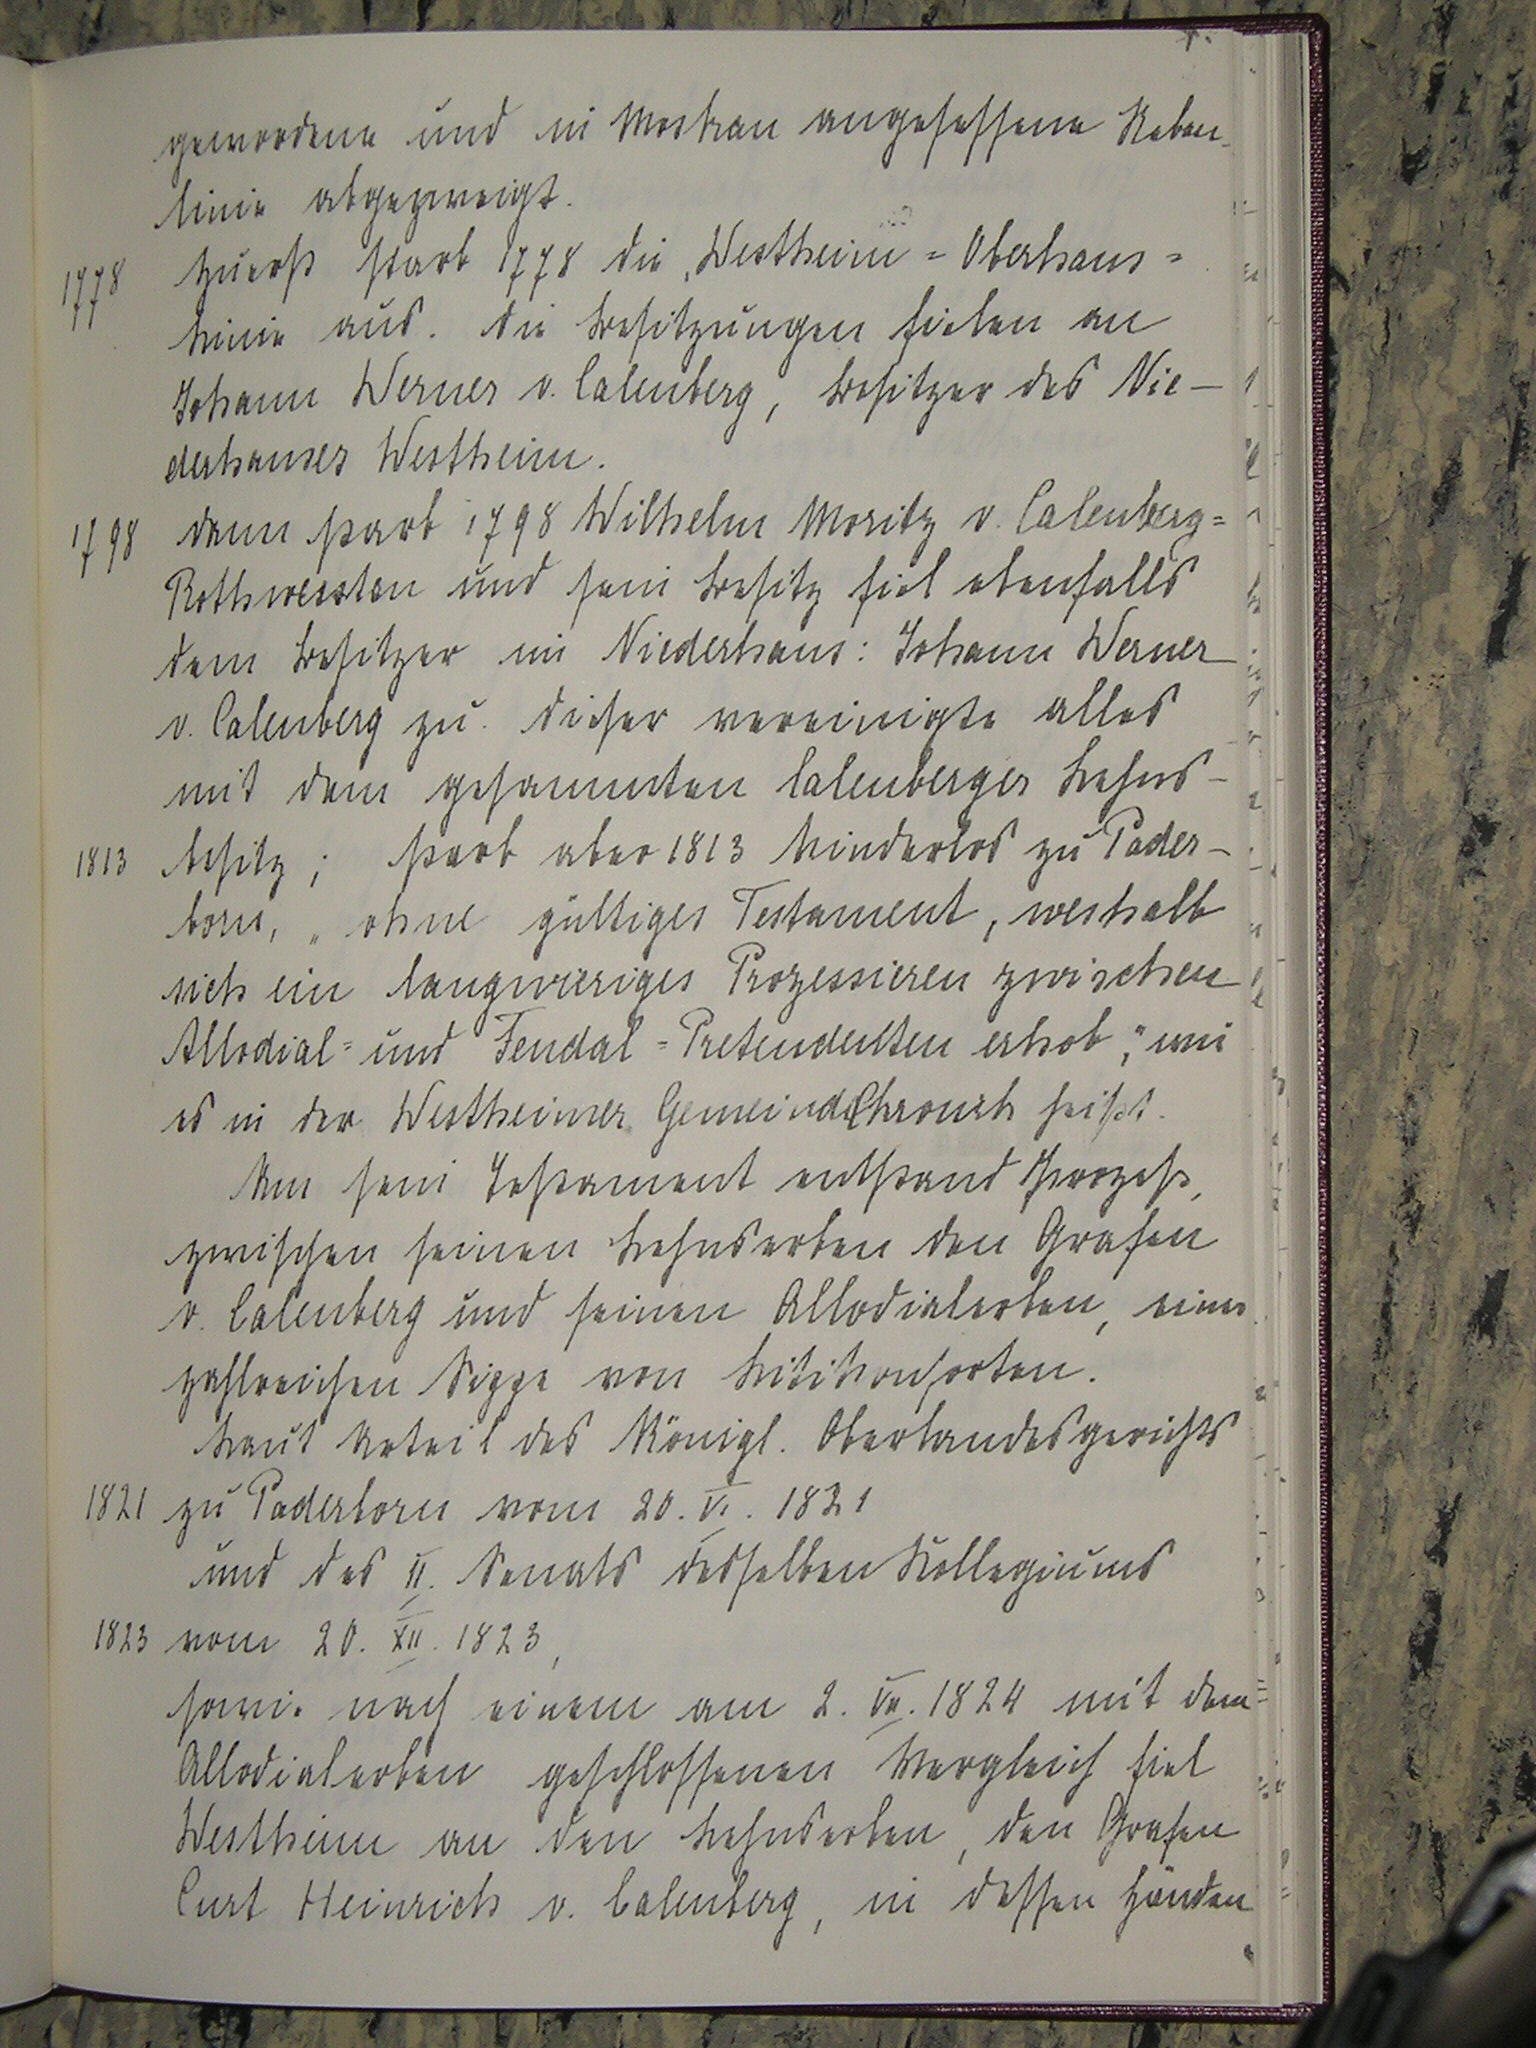 gewordene und in Moskau angesessene Neben-
linie abgezweigt.
1778 Zuerst starb 1778 die Westheim = Oberhaus =
Linie aus. Die Besitzungen fielen an
Johann Werner v. Calenberg, Besitzer des Nie-
derhauses Westheim.
1798 Dann starb 1798 Wilhelm Moritz v. Calenberg=
Rothwesten und sein Besitz fiel ebenfalls
dem Besitzer im Niederhaus: Johann Werner
v. Calenberg zu. Dieser vereinigte alles
mit dem gesammten Calenberger Lehns-
1813 besitz; starb aber 1813 kinderlos zu Pader-
born, „ohne gültiges Testament, weshalb
sich ein langwieriges Prozessieren zwischen
Allodial= und Feudal=Pretendenten erhob,“ wie
es in der Westheimer GemeindeChronik heißt.
Um sein Testament entstand Prozeß,
zwischen seinen Lehnserben den Grafen
v. Calenberg und seinen Allodialerben, einer
zahlreichen Sippe von Litiskonsorten.
Laut Urteil des Königl. Oberlandesgerichts
1821 zu Paderborn vom 20. VI. 1821
und des II. Senats desselben Kollegiums
1823 vom 20. XII. 1823,
sowie nach einem am 2. VII. 1824 mit dem
Allodialerben geschlossenen Vergleich fiel
Westheim an den Lehnserben, den Grafen
Curt Heinrich v. Calenberg, in dessen Händen